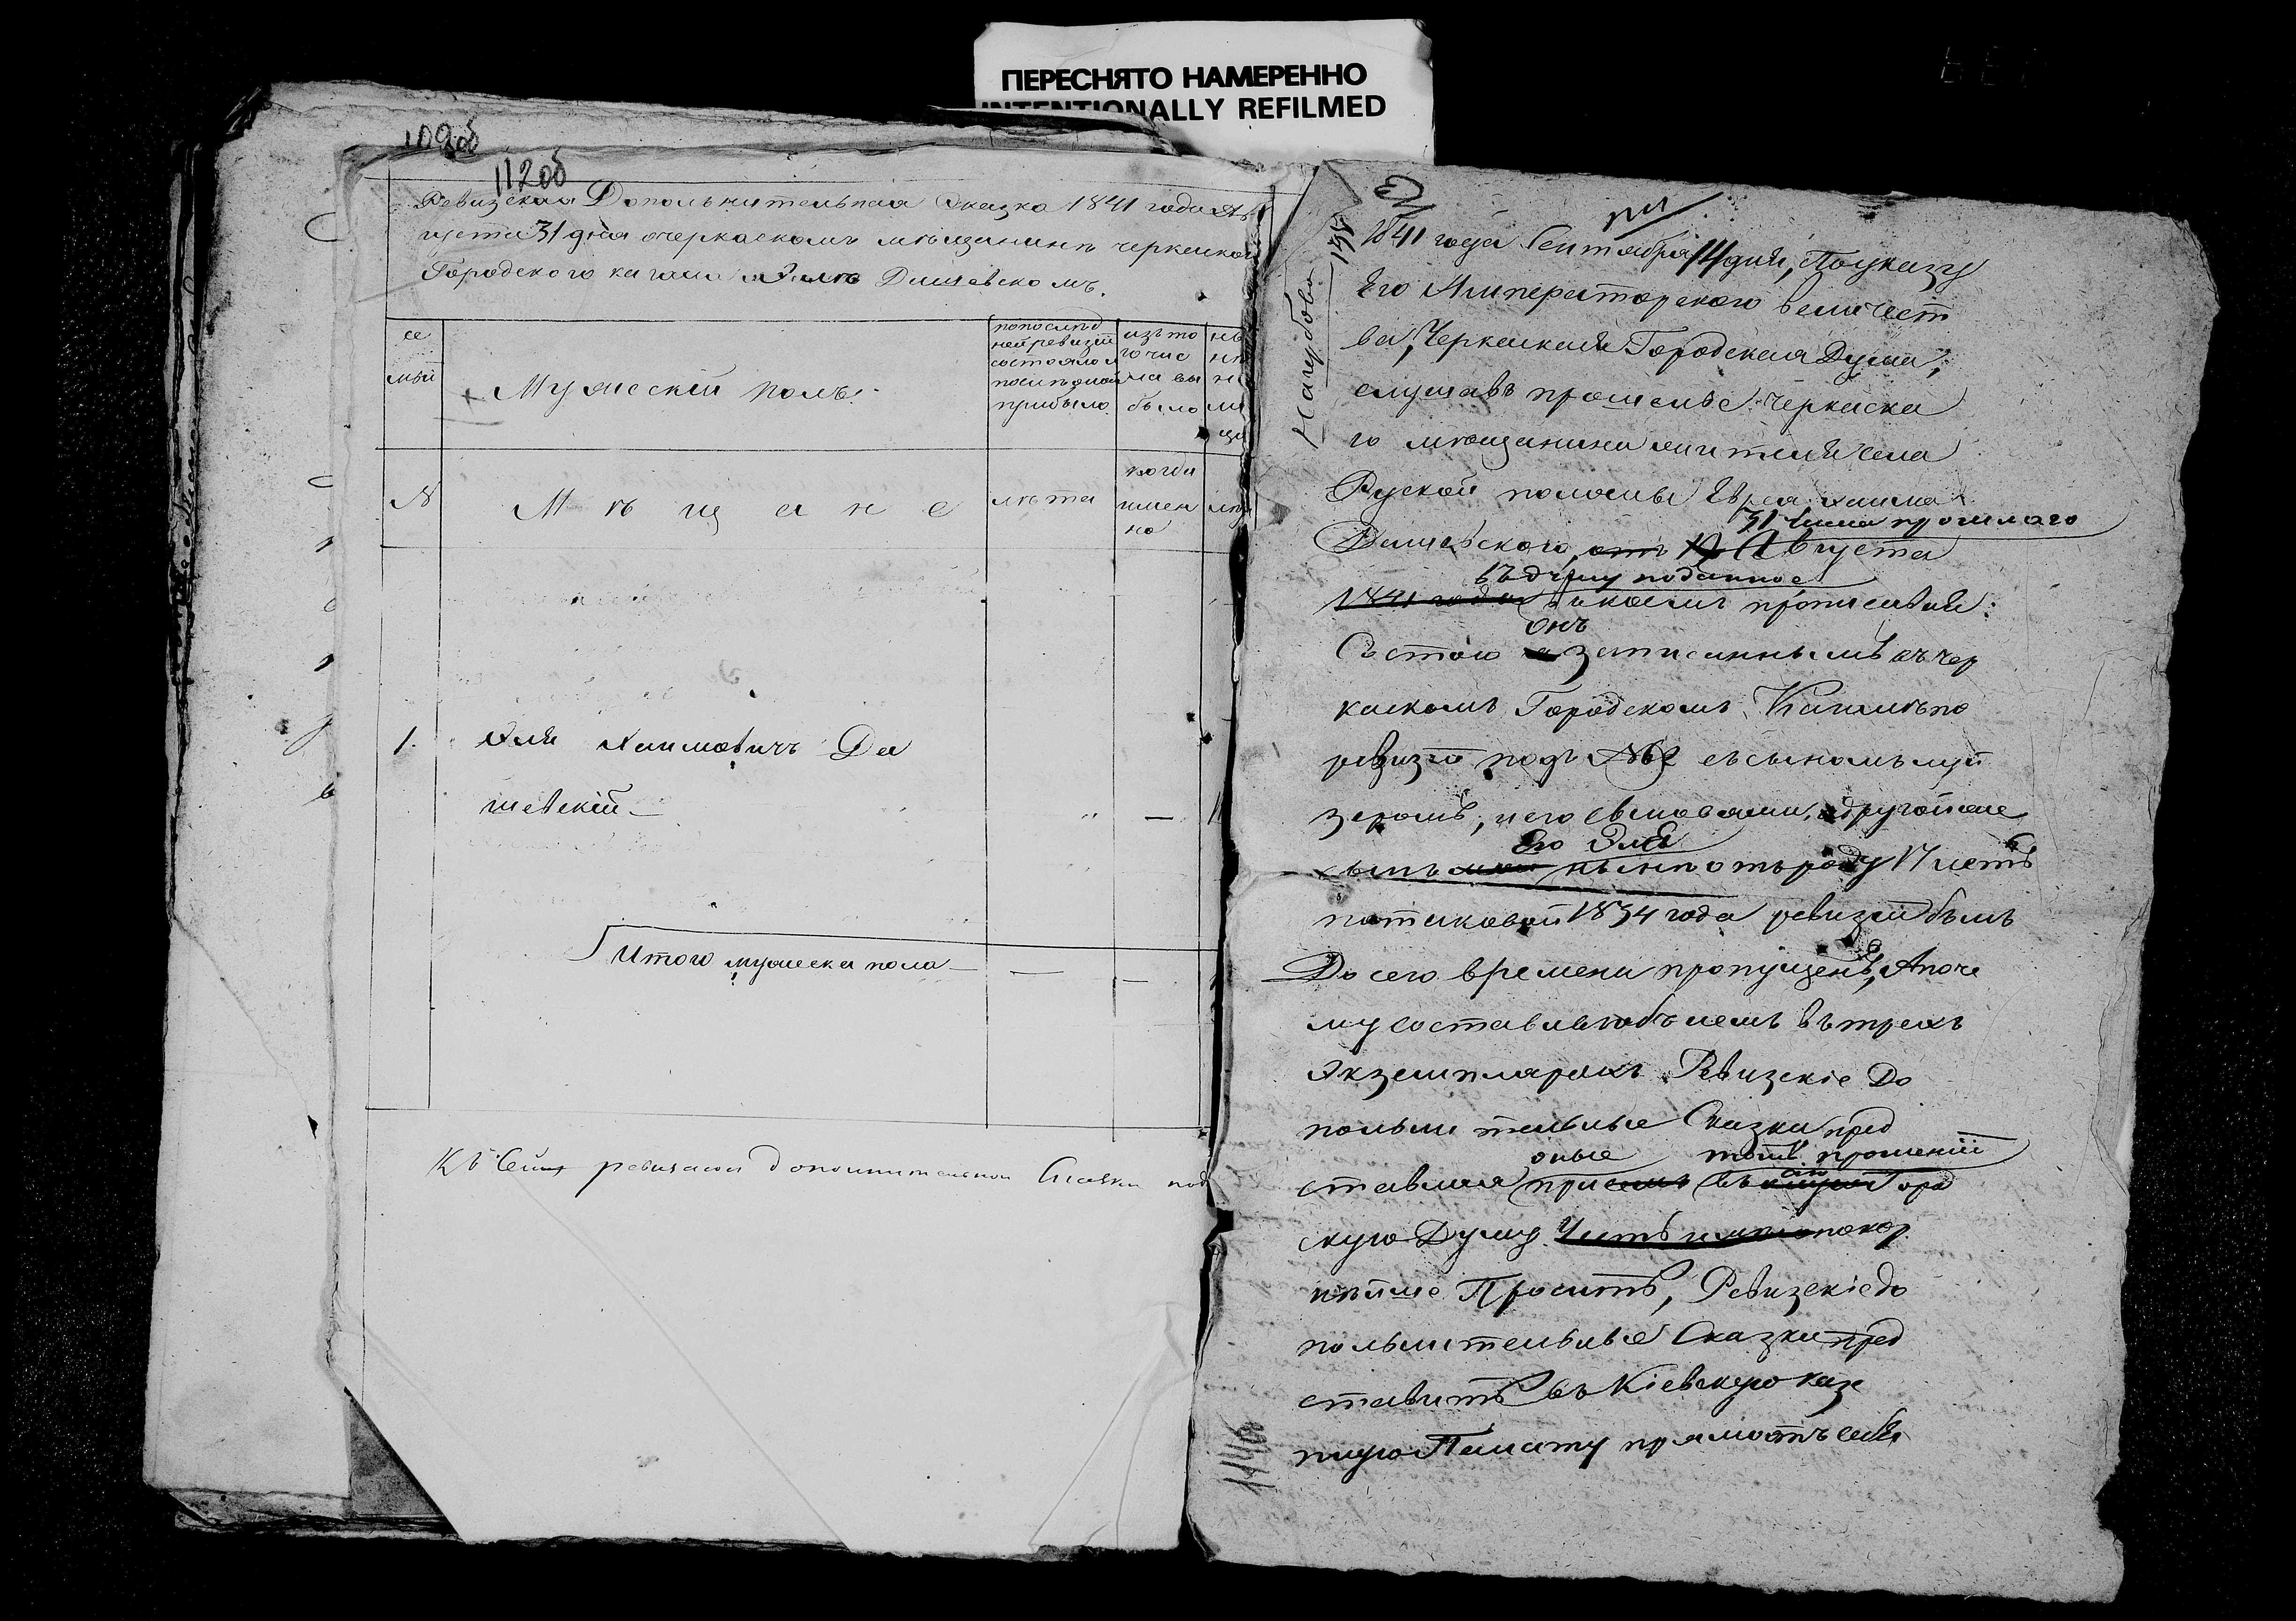 ПЕРЕСНЯТО НАМЕРЕННО
INTENTIONALLY REFILMED
109об
112об
Ревизская Дополнительная Сказка 1841 года Ав
густа 31 дня очеркаскомъ мещанинѣ черкаска
Городского кагала Элю Дашевскомъ.
се
мьи
Мужескій полъ.
попослѣд
ней ревизіи
состояло и
послѣ оной
прибыло
изъ то
го чис
ла вы
было
№
Мѣщане
лѣта
когда
имен
но
1.
Эля Хаимовичъ Да
шевскій —
Итого мужеска пола —
Къ Сей ревизской дополнительной Сказки под
1841 года Сентября 14 дня, По указу
Его Императорского величест
ва, Черкаская Городская Дума,
слушавъ прошеніе черкаска
го мещанина жителя села
Руской поляны Еврея Хаима
31 числа прошлаго
Дашевского, отъ Августа
въ думу поданное
1841 года въ коемъ прописывая:
онъ
Состою я записаннымъ въ чер
каскомъ Городскомъ Кагалѣ по
ревизіи подъ № съ сыномъ луй
зеромъ, и его сыновями, а другой же
Его Эля
сынъ мой нынѣ отъ роду 17 летъ
по таковой 1834 года ревизіи былъ
До сего времени пропущенъ, А поче
му составивъ объ немъ въ трехъ
экземплярахъ Ревизскіе До
полнительные Сказки пред
оные томъ прошеніи
ставляя при семъ въ Город
скую Думу Честь имею покор
нѣйше Проситъ, Ревизскіе до
полнительные Сказки пред
ставить въ Кіевскую Казе
нную Палату прямо отъ себя
144